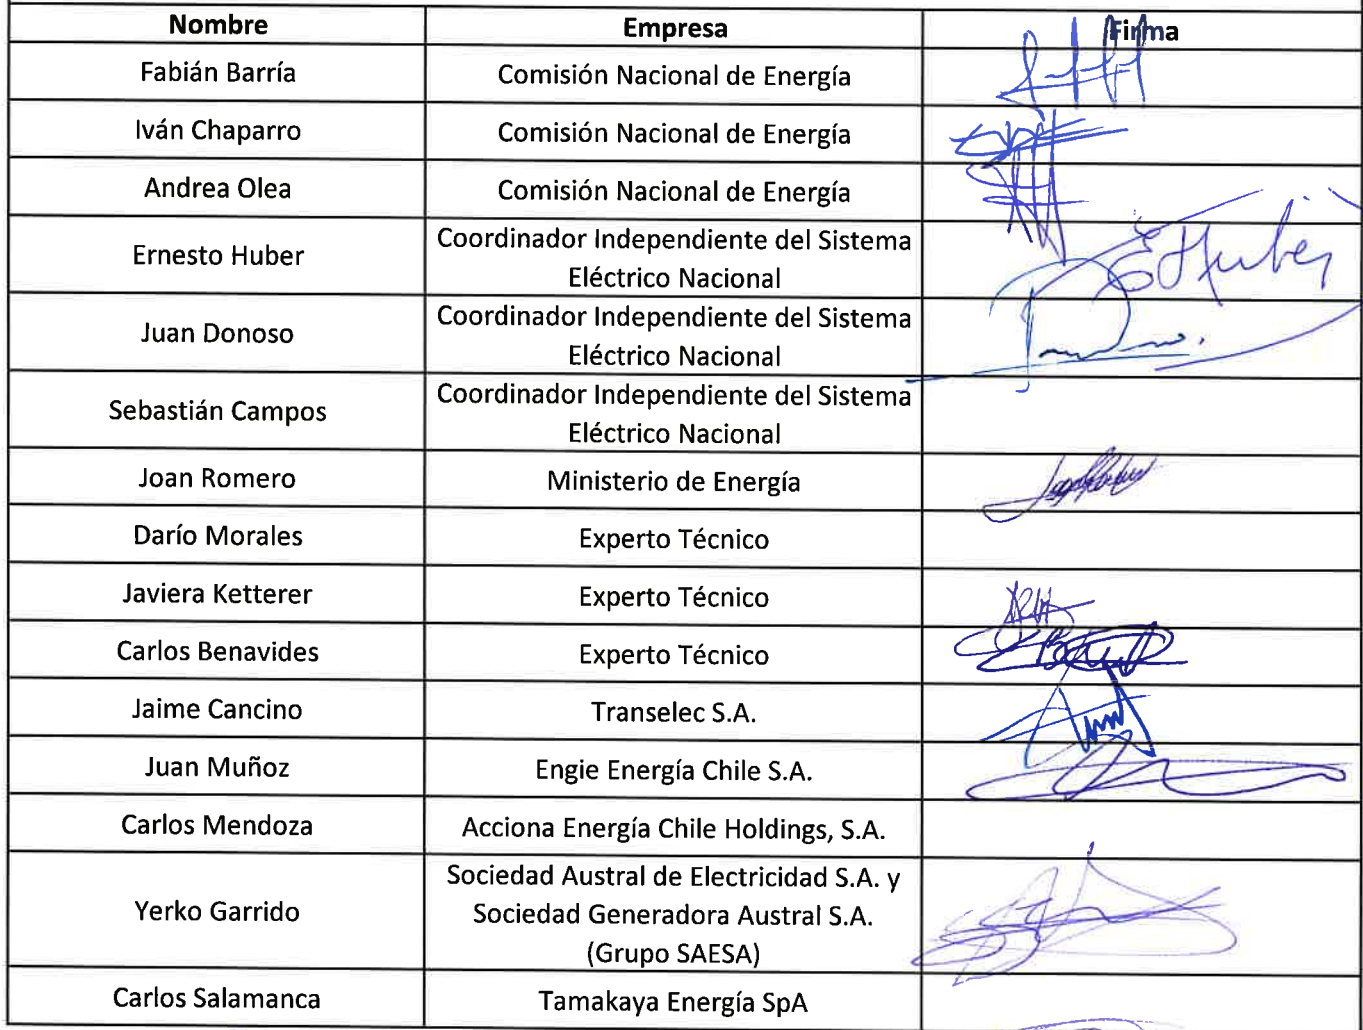 Nombre Empresa Firma
Fabián Barría Comisión Nacional de Energía
Iván Chaparro Comisión Nacional de Energía
Andrea Olea Comisión Nacional de Energía
Ernesto Huber Coordinador Independiente del Sistema
Eléctrico Nacional EHuber
Juan Donoso Coordinador Independiente del Sistema
Eléctrico Nacional
Sebastián Campos Coordinador Independiente del Sistema
Eléctrico Nacional
Joan Romero Ministerio de Energía
Darío Morales Experto Técnico
Javiera Ketterer Experto Técnico
Carlos Benavides Experto Técnico
Jaime Cancino Transelec S.A.
Juan Muñoz Engie Energía Chile S.A.
Carlos Mendoza Acciona Energía Chile Holdings, S.A.
Yerko Garrido Sociedad Austral de Electricidad S.A. y
Sociedad Generadora Austral S.A.
(Grupo SAESA)
Carlos Salamanca Tamakaya Energía SpA